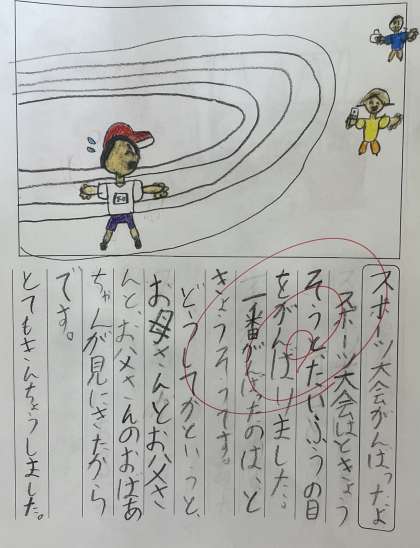 スポーツ大会がんばったよ
スポーツ大会はときょう
そうと、たいふうの目
をがんばりました。
一番がんばったのは、と
きょうそうです。
どうしてかというと、
お母さんとお父さ
んと、お父さんのおばあ
ちゃんが見にきたから
です。
とてもきんちょうしました。